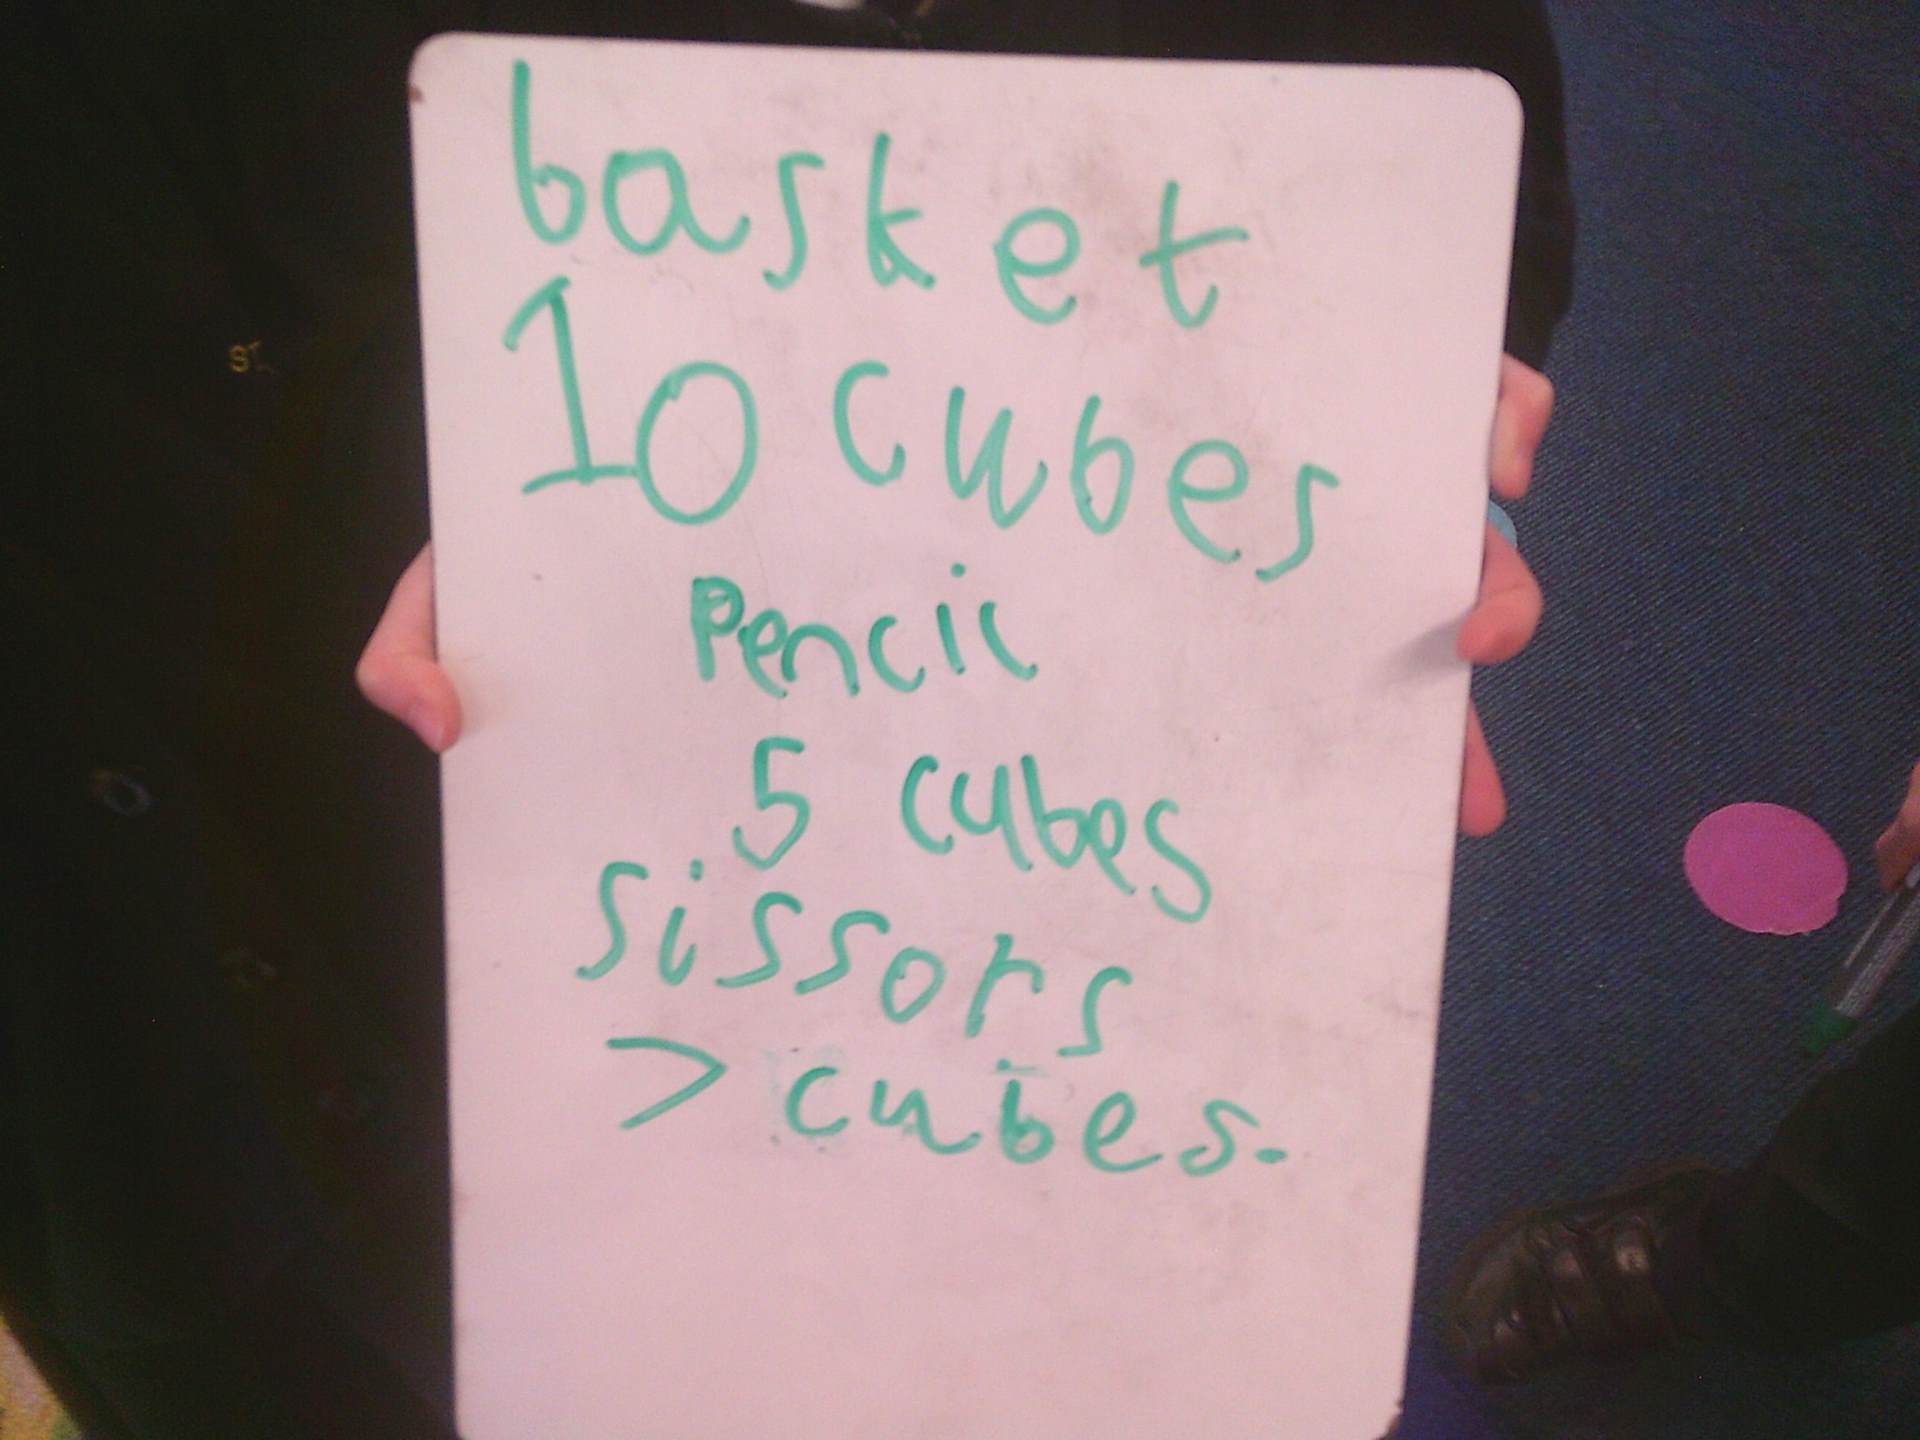 basket
10 cubes
Pencil
5 cubes
sissors
7 cubes.